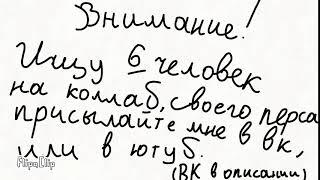 Внимание!
Ищу 6 человек
на коллаб, своего перса
присылайте мне в вк,
или в ютуб.
(ВК в описании)
FlipaClip